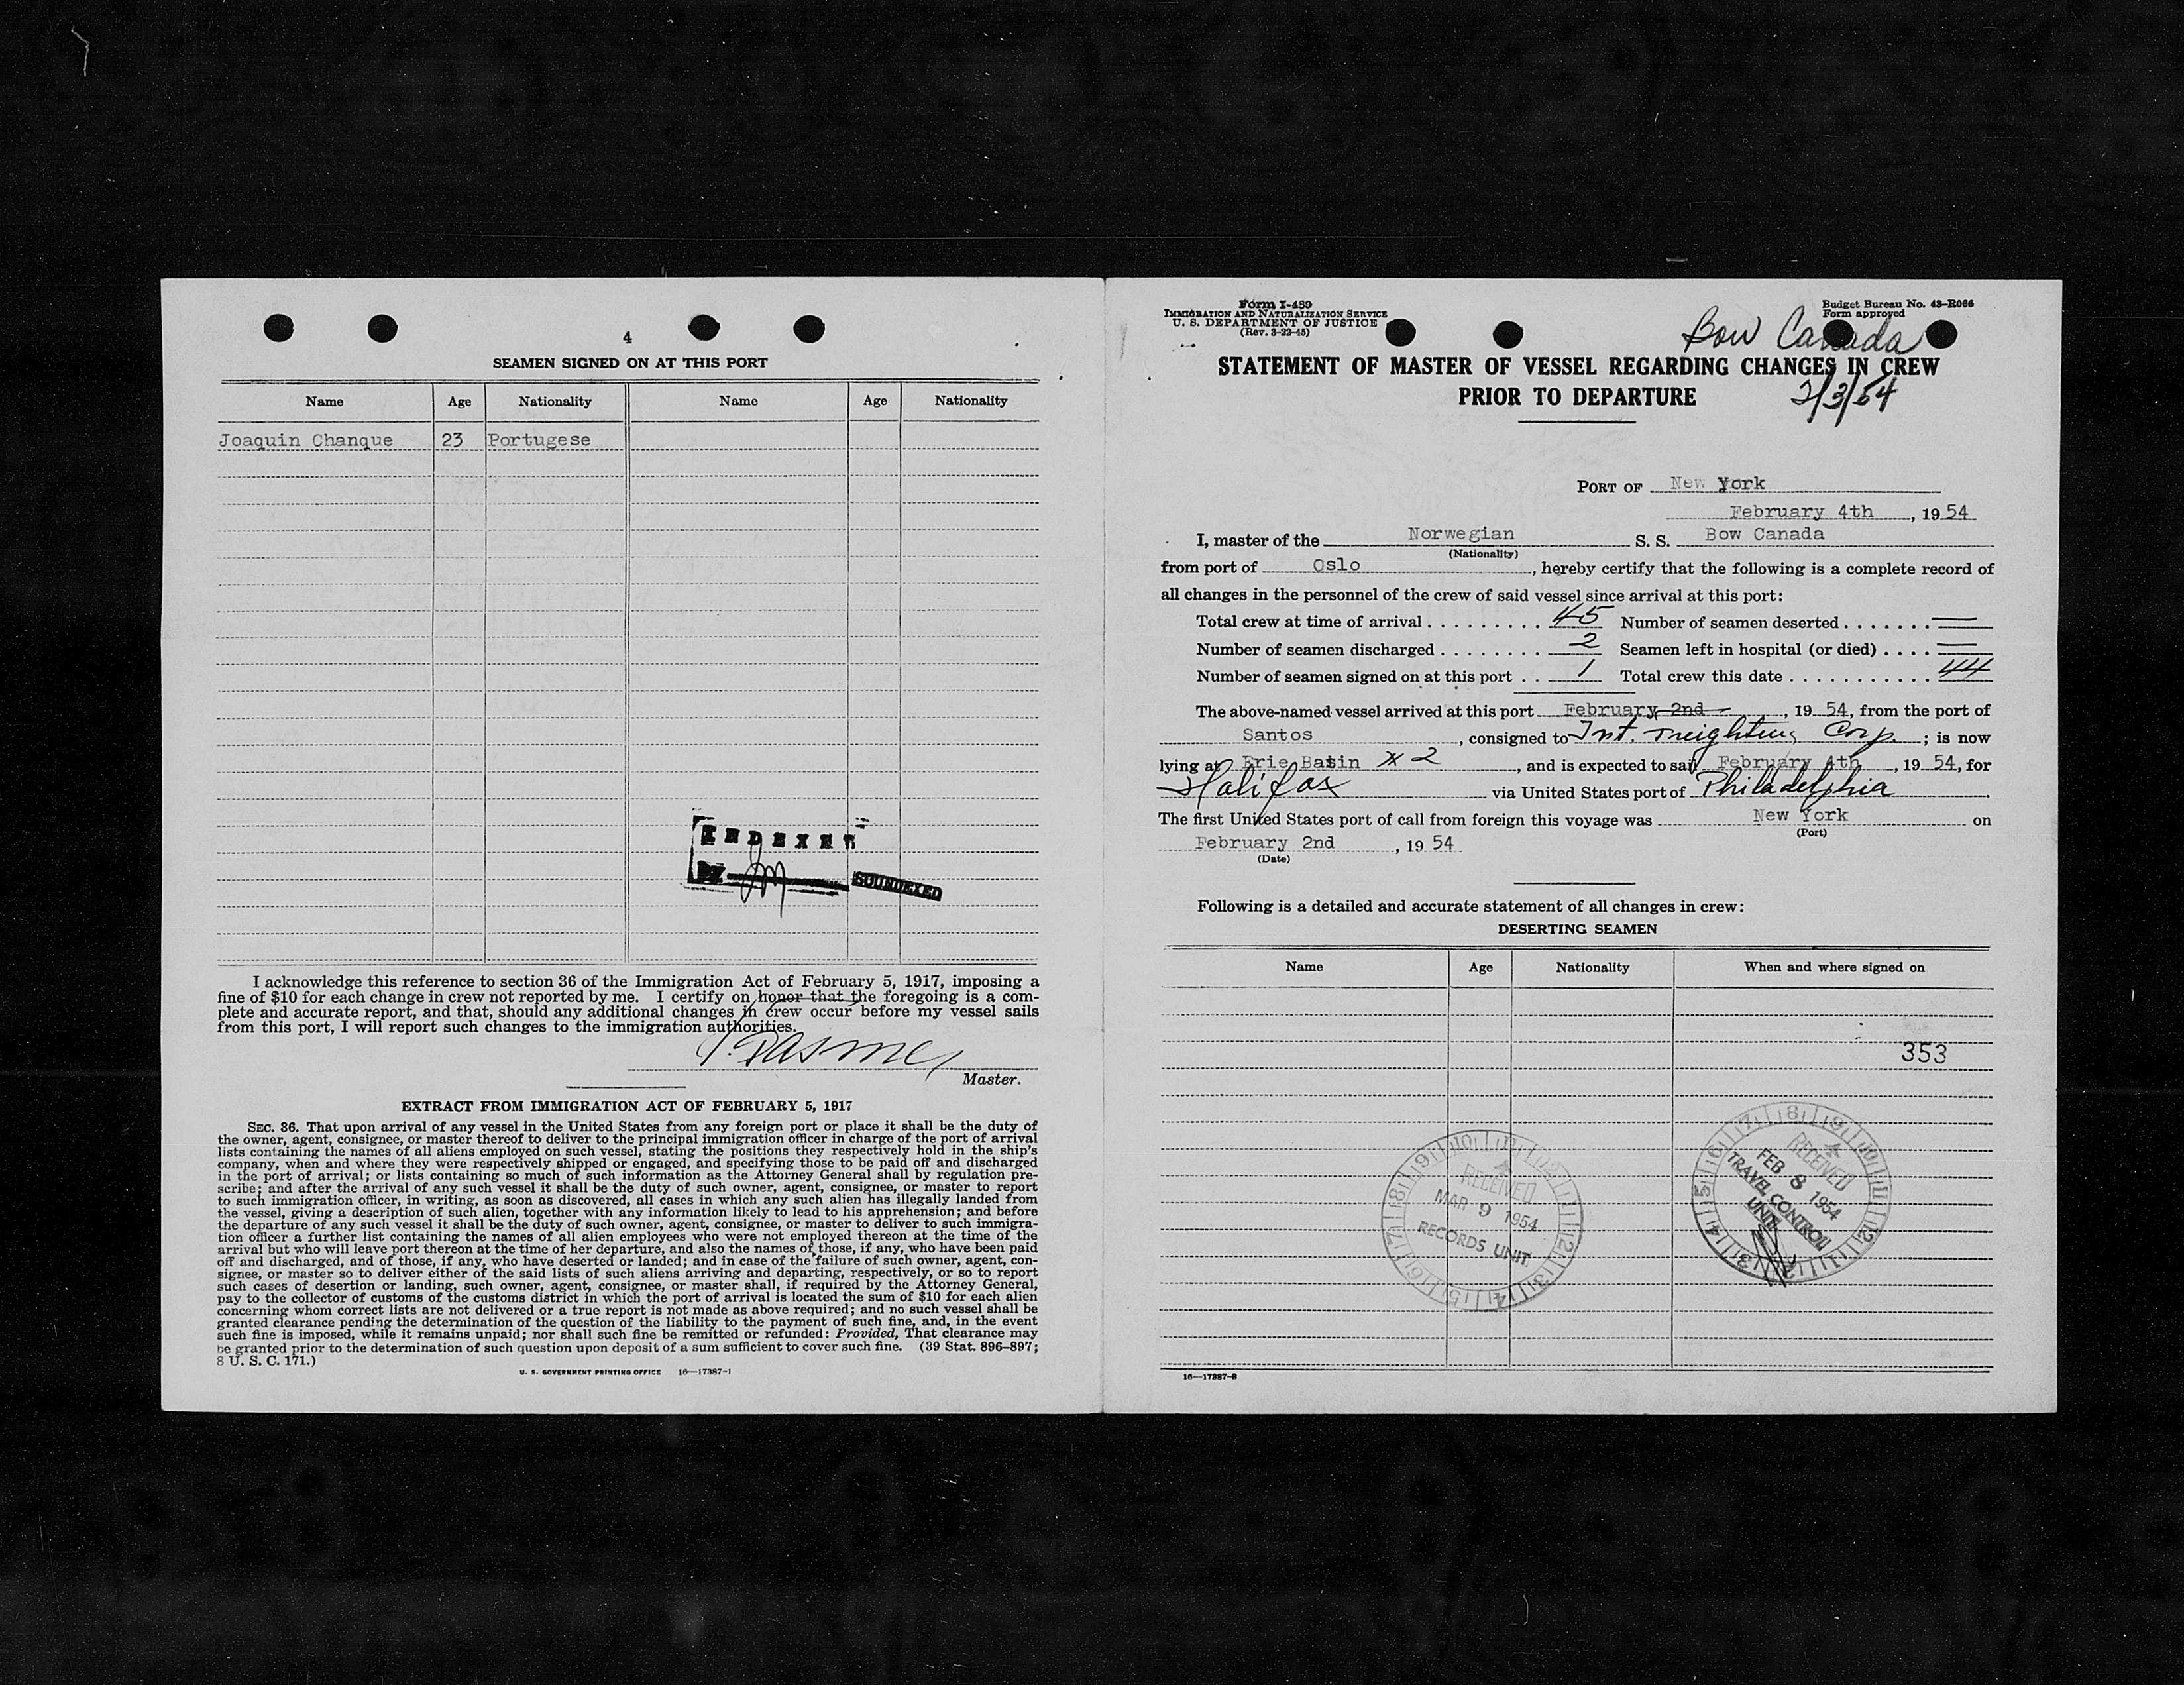 4
SEAMEN SIGNED ON AT THIS PORT
Name Age Nationality Name Age Nationality
Joaquin Chanque 23 Portugese
INDEXED
BY JM
SOUNDEXED
I acknowledge this reference to section 36 of the Immigration Act of February 5, 1917, imposing a
fine of $10 for each change in crew not reported by me. I certify on honor that the foregoing is a com-
plete and accurate report, and that, should any additional changes in crew occur before my vessel sails
from this port, I will report such changes to the immigration authorities.
Master.
EXTRACT FROM IMMIGRATION ACT OF FEBRUARY 5, 1917
SEC. 36. That upon arrival of any vessel in the United States from any foreign port or place it shall be the duty of
the owner, agent, consignee, or master thereof to deliver to the principal immigration officer in charge of the port of arrival
lists containing the names of all aliens employed on such vessel, stating the positions they respectively hold in the ship's
company, when and where they were respectively shipped or engaged, and specifying those to be paid off and discharged
in the port of arrival; or lists containing so much of such information as the Attorney General shall by regulation pre-
scribe; and after the arrival of any such vessel it shall be the duty of such owner, agent, consignee, or master to report
to such immigration officer, in writing, as soon as discovered, all cases in which any such alien has illegally landed from
the vessel, giving a description of such alien, together with any information likely to lead to his apprehension; and before
the departure of any such vessel it shall be the duty of such owner, agent, consignee, or master to deliver to such immigra-
tion officer a further list containing the names of all alien employees who were not employed thereon at the time of the
arrival but who will leave port thereon at the time of her departure, and also the names of those, if any, who have been paid
off and discharged, and of those, if any, who have deserted or landed; and in case of the failure of such owner, agent, con-
signee, or master so to deliver either of the said lists of such aliens arriving and departing, respectively, or so to report
such cases of desertion or landing, such owner, agent, consignee, or master shall, if required by the Attorney General,
pay to the collector of customs of the customs district in which the port of arrival is located the sum of $10 for each alien
concerning whom correct lists are not delivered or a true report is not made as above required; and no such vessel shall be
granted clearance pending the determination of the question of the liability to the payment of such fine, and, in the event
such fine is imposed, while it remains unpaid; nor shall such fine be remitted or refunded: Provided, That clearance may
be granted prior to the determination of such question upon deposit of a sum sufficient to cover such fine. (39 Stat. 896–897;
8 U. S. C. 171.)
U. S. GOVERNMENT PRINTING OFFICE 16—17387-1
Form I-489
IMMIGRATION AND NATURALIZATION SERVICE
U. S. DEPARTMENT OF JUSTICE
(Rev. 3-22-45)
Budget Bureau No. 43-R066
Form approved
Bow Canada
STATEMENT OF MASTER OF VESSEL REGARDING CHANGES IN CREW
PRIOR TO DEPARTURE
2/3/54
PORT OF New York
February 4th, 1954
I, master of the Norwegian S. S. Bow Canada
(Nationality)
from port of Oslo, hereby certify that the following is a complete record of
all changes in the personnel of the crew of said vessel since arrival at this port:
Total crew at time of arrival 45 Number of seamen deserted —
Number of seamen discharged 2 Seamen left in hospital (or died) —
Number of seamen signed on at this port 1 Total crew this date 44
The above-named vessel arrived at this port February 2nd, 1954, from the port of
Santos, consigned to Int. Freighting Corp.; is now
lying at Erie Basin x 2, and is expected to sail February 4th, 1954, for
Halifax via United States port of Philadelphia
The first United States port of call from foreign this voyage was New York on
(Port)
February 2nd, 1954
(Date)
Following is a detailed and accurate statement of all changes in crew:
DESERTING SEAMEN
Name Age Nationality When and where signed on
353
RECEIVED
MAR 9 1954
RECORDS UNIT
RECEIVED
FEB 8 1954
TRAVEL CONTROL
UNIT
16—17387-3